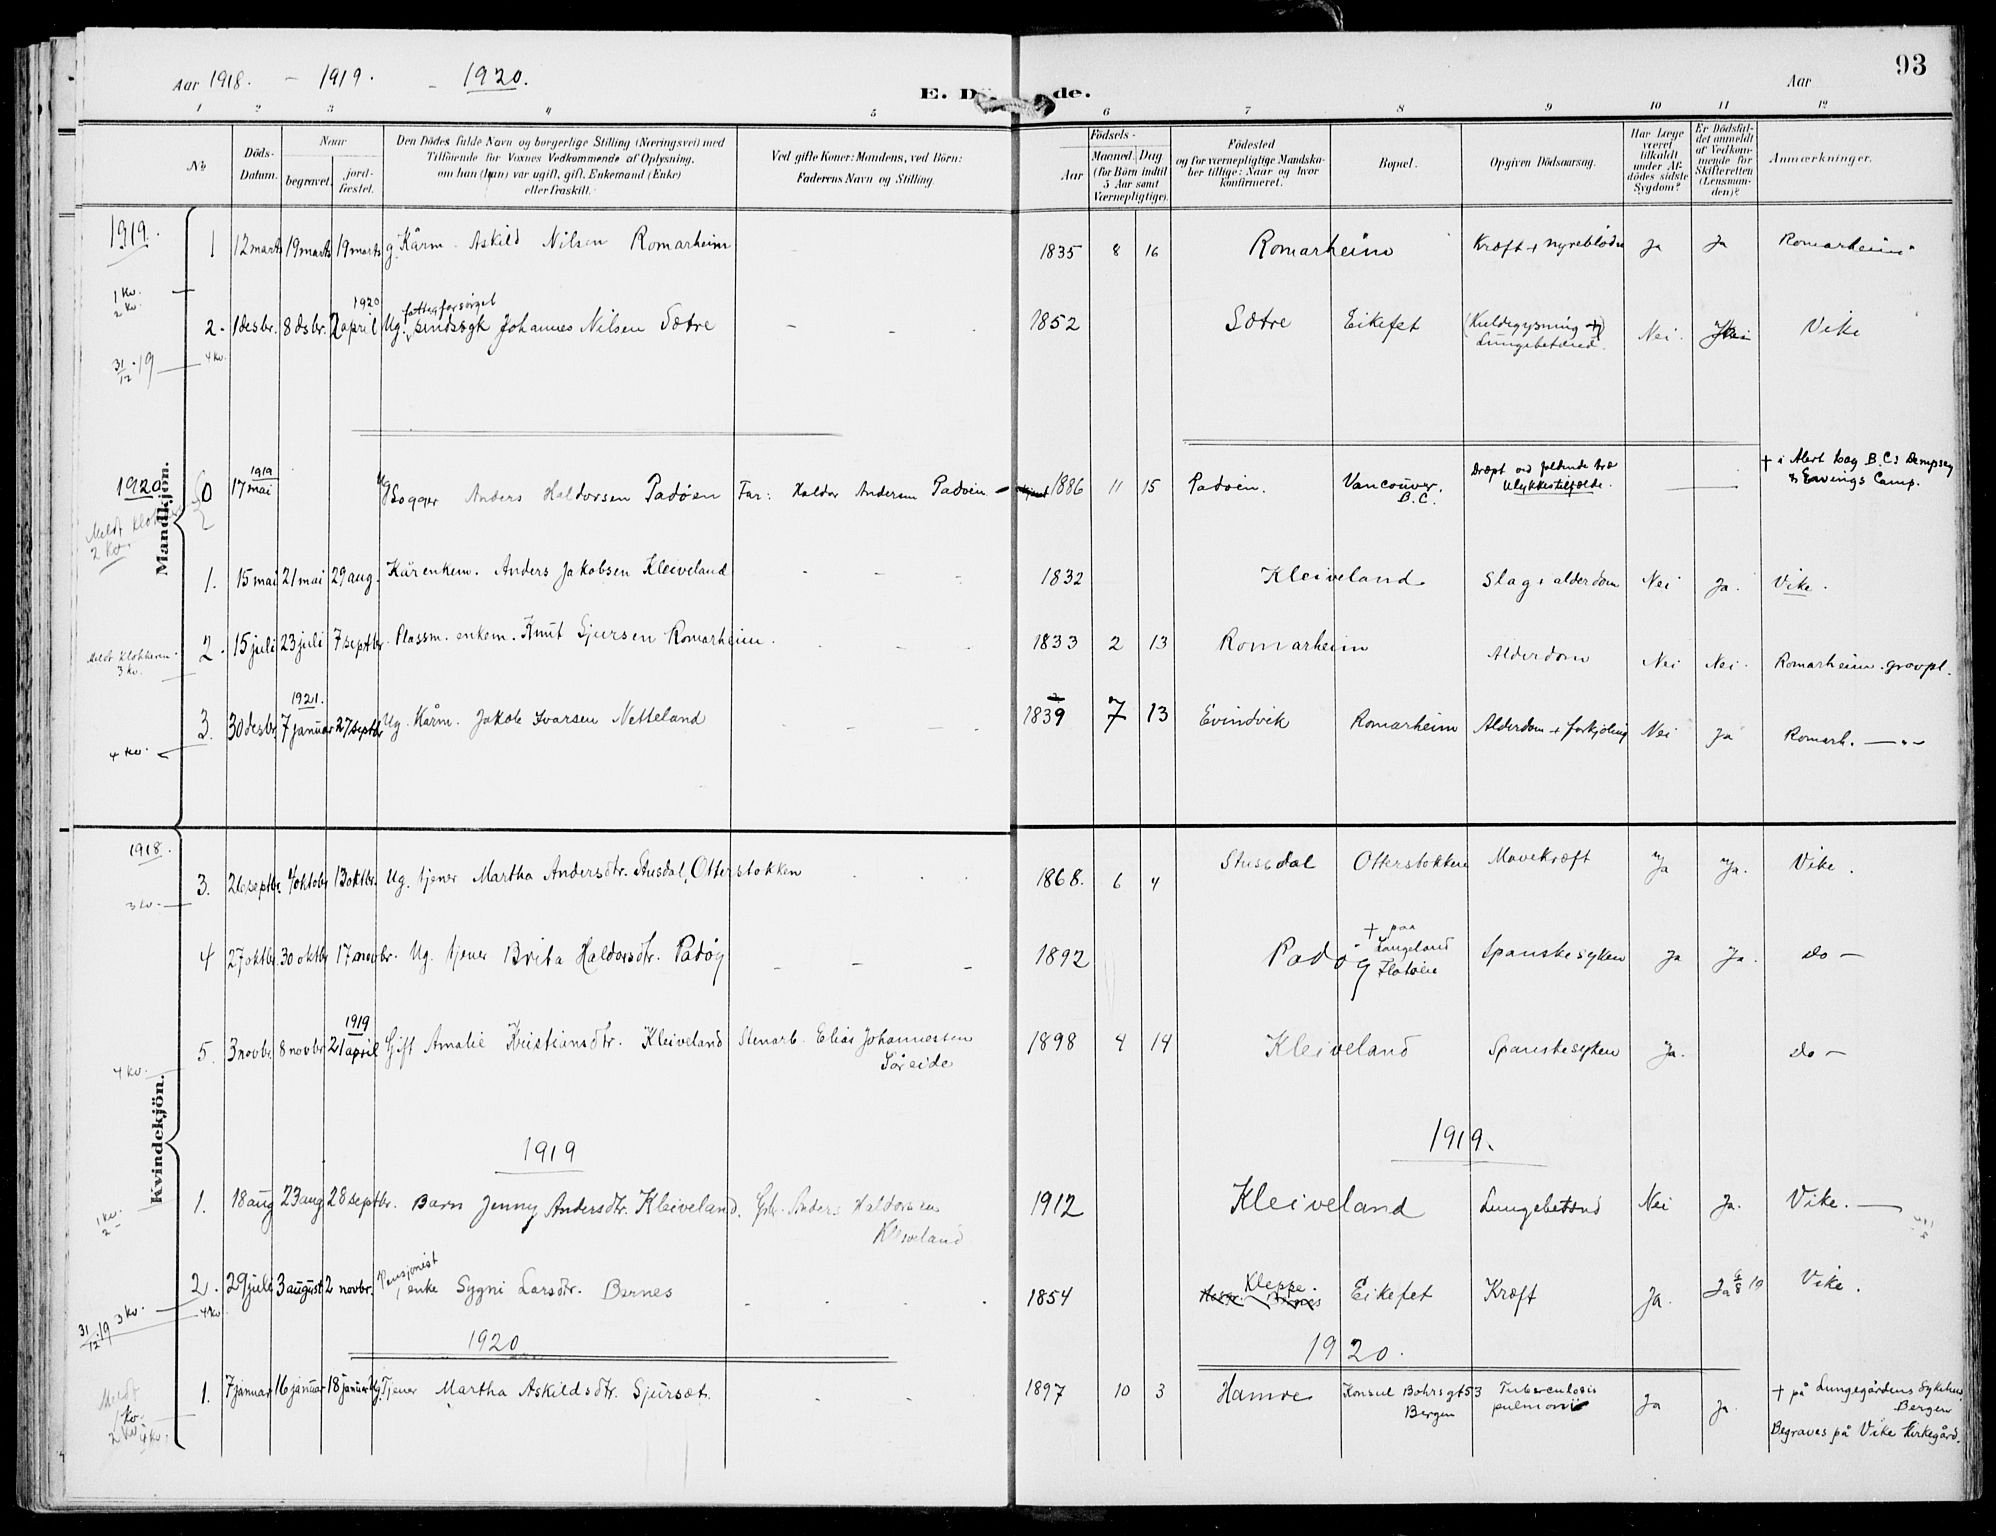 Aar 1918. – 1919. – 1920.
E. Dö de.
Aar
93
1 2 3 4 5 6 7 8 9 10 11 12
No.
Döds-Datum.
Naar
begravet.
jord-fæstet.
Den Dödes fulde Navn og borgerlige Stilling (Næringsvei) med Tilföiende for Voxnes Vedkommende af Oplysning, om han (hun) var ugift, gift, Enkemand (Enke) eller fraskilt.
Ved gifte Koner: Mandens, ved Börn: Faderens Navn og Stilling.
Födsels-
Aar
Maaned. Dag.
(for Börn indtil 5 Aar samt Værnepligtige).
Födested og for værnepligtige Mandskaber tillige: Naar og hvor konfirmeret.
Bopæl.
Opgiven Dödsaarsag.
Har Læge været tilkaldt under Afdödes sidste Sygdom?
Er Dödsfaldet anmeldt af Vedkommende for Skifteretten (Lensmanden)?
Anmærkninger.
Mandkjön.
1919.
1 12 marts 19 marts 19 marts g. Kårm. Askild Nilsen Romarheim – – 1835 8 16 Romarheim Kræft + nyreblødn Ja Ja Romarheim
1 kv.
2 kv
2. 1 desbr. 8 dsbr. 1920 2 april Ug. fattigforsørget sindssyk Johannes Nilsen Sætre – – 1852 Sætre Eikefet (Kuldegysning +) Lungebetænd. Nei. Nei Vike
31/12-19 4 kv.
1920
0 1919 17 mai Ug Logger Anders Haldorsen Padøen Far: Haldor Andersen Padøen – 1886 11 15 Padøen. Vancouver. B.C. Dræpt ved faldende træ Ulykkestilfælde. † i Alert bay B.C. i Dempsey & Ewings Camp.
Meldt klokkeren
2 kv.
1. 15 mai 21 mai 29 aug. Kår enkem. Anders Jakobsen Kleiveland – – 1832 Kleiveland Slag i alderdom Nei Ja. Vike.
2. 15 juli 23 juli 7 septbr. Plassm. enkem. Knut Sjursen Romarheim. – – 1833 2 13 Romarheim Alderdom Nei Nei. Romarheim. gravpl.
Meldt klokkeren
3 kv.
3. 30 desbr. 1921. 7 januar 27 septbr Ug. Kårm. Jakob Ivarsen Netteland – – 1839 7 13 Evindvik Romarheim Alderdom + forkjøling Nei Ja Romarh. —"–
4 kv.
Kvindekjön.
1918.
3. 26 septbr. 4 oktobr 13 oktbr. Ug. tjener Martha Andersdtr. Stusdal, Otterstokken 1868. 6 4 Stussdal Otterstokken Mavekræft Ja Ja. Vike.
3 kv.
4 27 oktbr 30 oktbr 17 novbr. Ug. tjener Brita Haldorsdtr. Padøy – – – 1892 Padøy † paa Langeland Flatøen Spanskesyken Ja Ja. do –
5. 3 novbr 8 novbr 1919 21 april Gift Amalie Kristiansdtr. Kleiveland Stenarb. Elias Johannessen Søreide 1898 4 14 Kleiveland Spanskesyken Ja. do –
4 kv.
1919 1919.
1. 18 aug 23 aug 28 septbr. Barn Jenny Andersdtr. Kleiveland. Gbr. Anders Haldorsens Kleiveland 1912 Kleiveland Lungebetænd Nei Ja. Vike. —
1 kv.
2 –
2. 29 juli 3 august 2 novbr. Pensjonist, enke Sygni Larsdtr. Bernes 1854 Kleppe. Eikefet Kræft Ja. Ja 6/8 19 Vike.
3 kv.
4 kv
31/12-19
1920 1920.
1. 7 januar 16 januar 18 januar Ug. Tjener Martha Askildsdtr. Sjursæt. 1897 10 3 Hamre Konsul Bohrsgt 53 Bergen Tuberculosis pulmonis Ja Ja. † på Lungegårdens Sykehus, Bergen
Begraves på Vike Kirkegård.
Meldt
1 kv.
2 kv
4 kv.